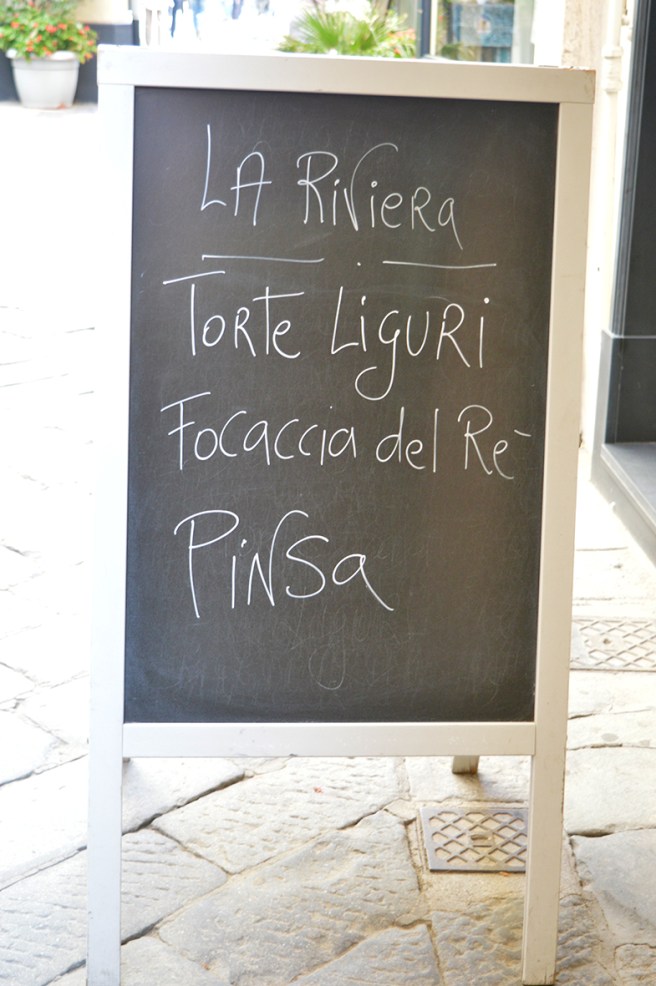 LA RiViera
Torte Liguri
Focaccia del Re
Pinsa